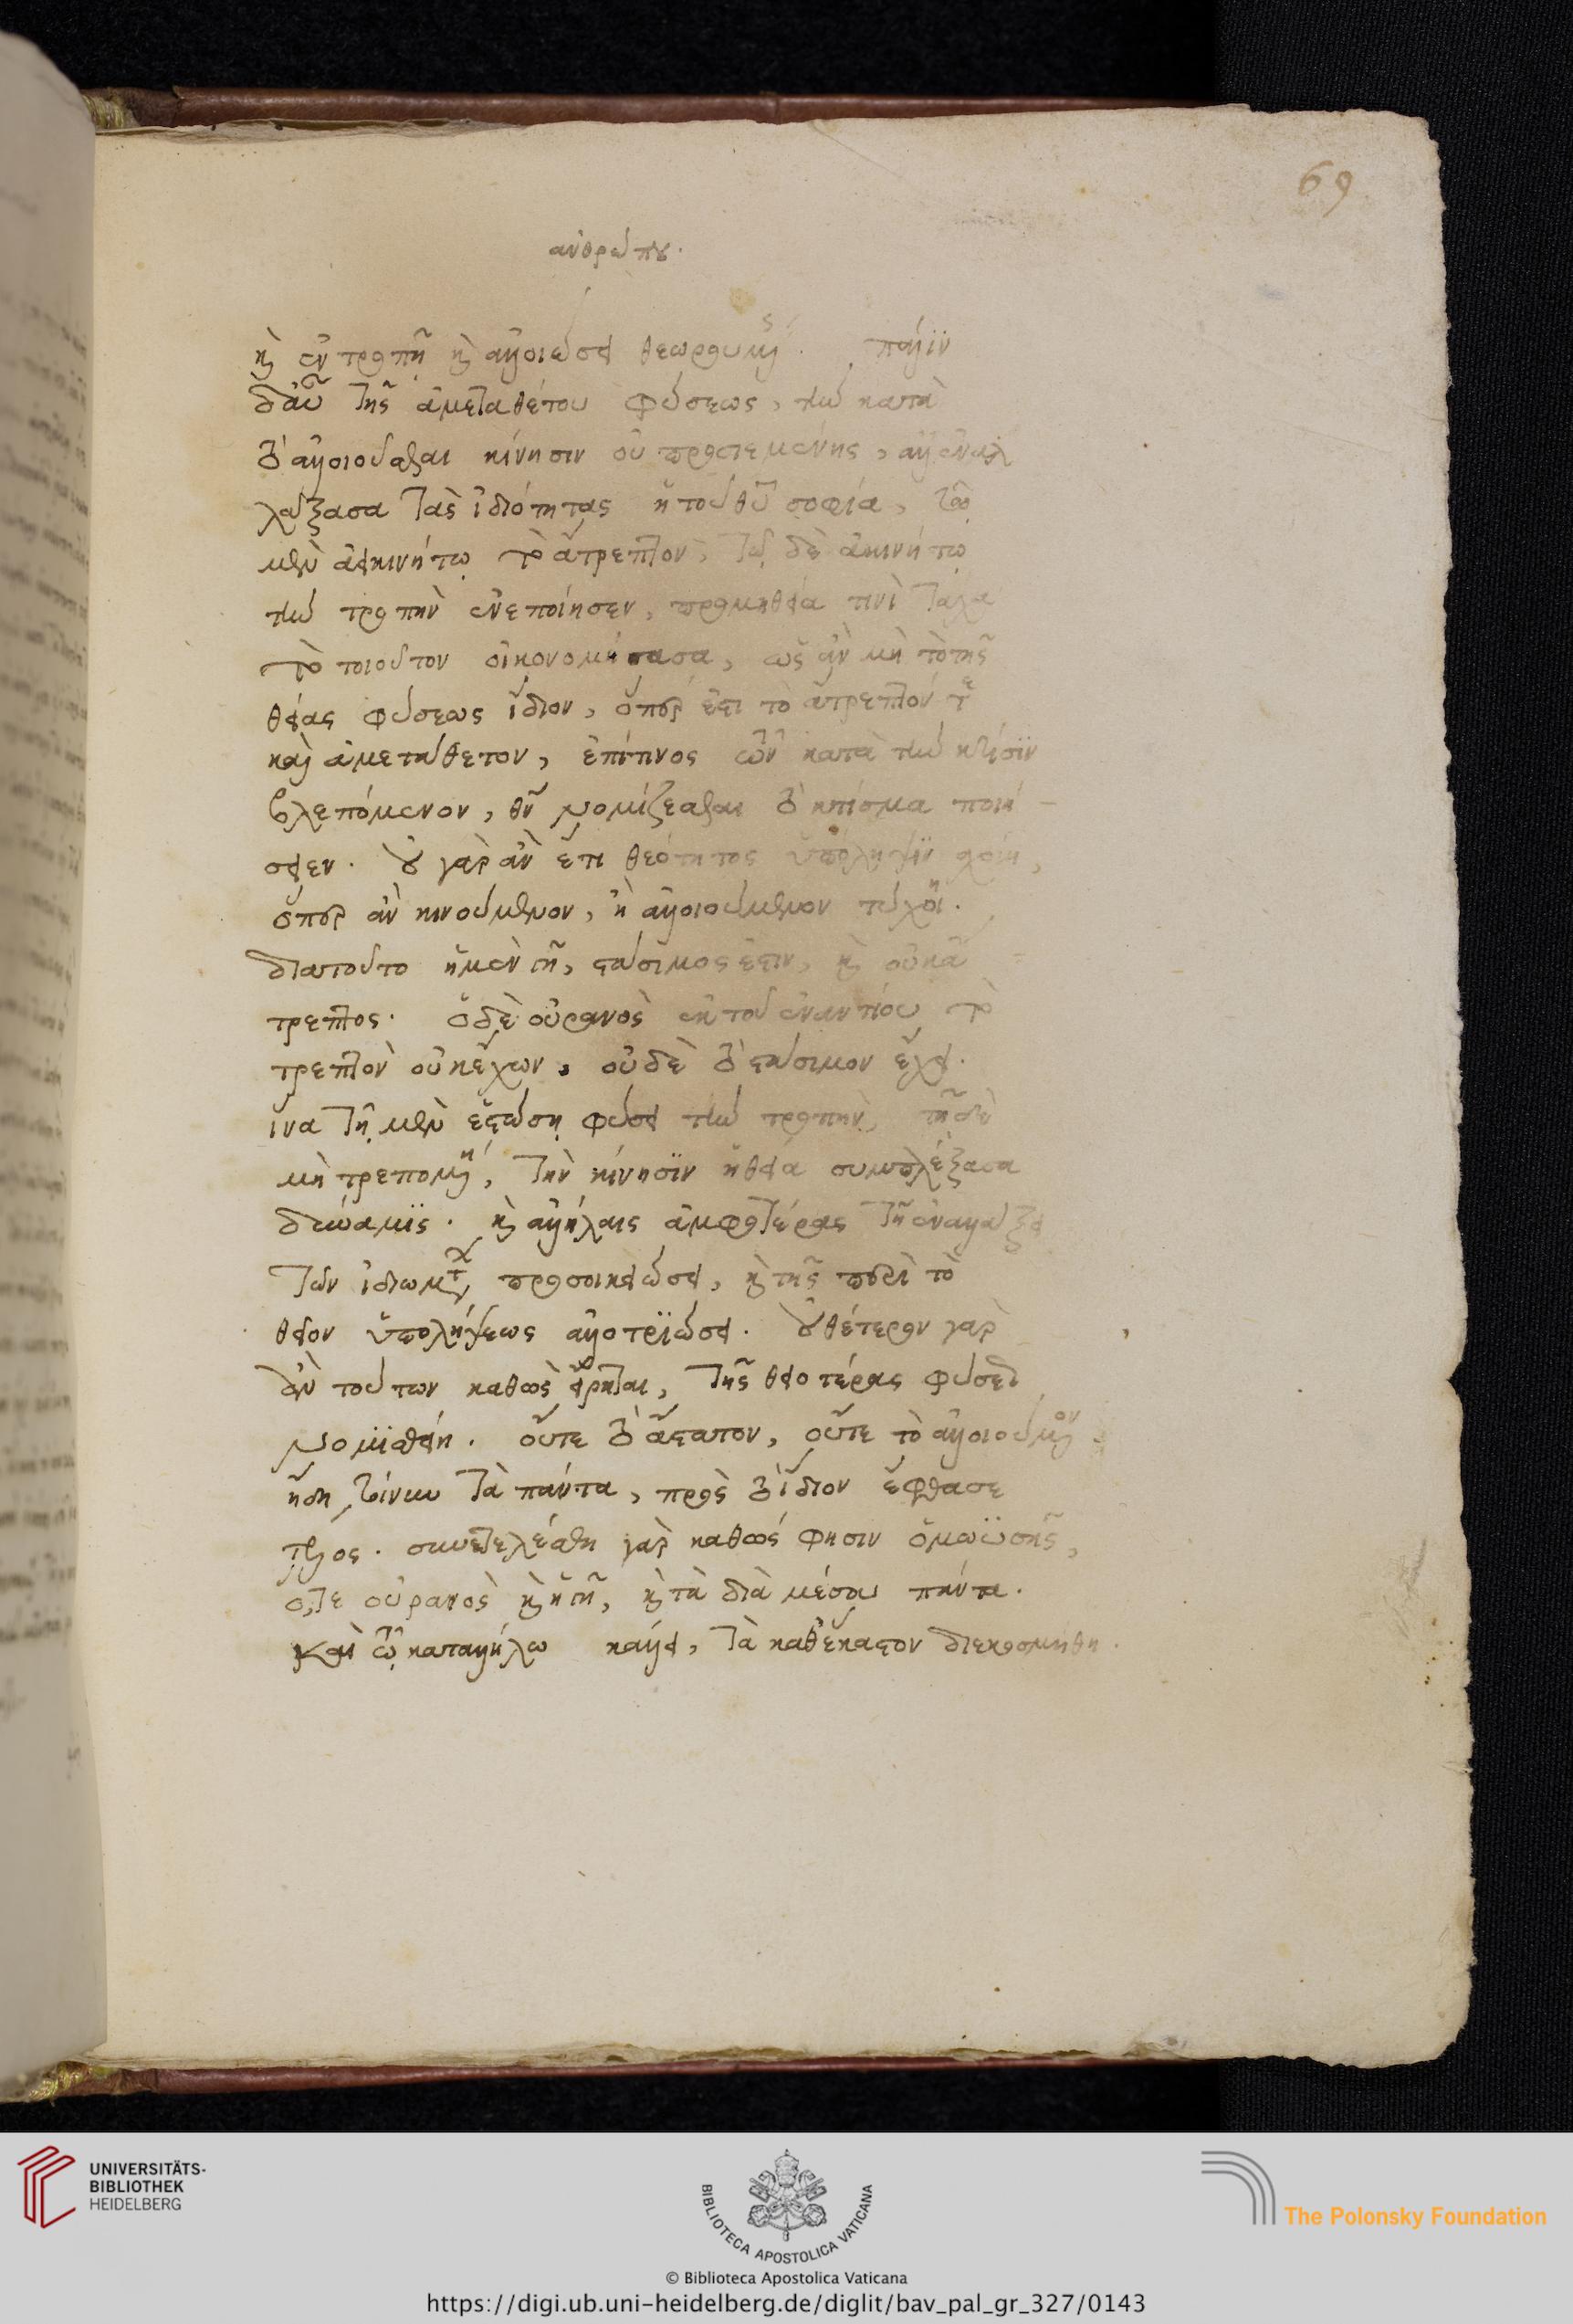 69
ἀνθρώπου.
καὶ ἐν τροπῇ καὶ ἀλλοιώσει θεωρουμένης. πάλιν
δὲ αὖ τῆς ἀμεταθέτου φύσεως, τὴν κατὰ
τὸ ἀλλοιοῦσθαι κίνησιν οὐ προσιεμένης, ἀλλ' ἐναλ
λάξασα τὰς ἰδιότητας ἡ τοῦ θεοῦ σοφία, τῷ
μὲν ἀεικινήτῳ τὸ ἄτρεπτον, τῷ δὲ ἀκινήτῳ
τὴν τροπὴν ἐνεποίησεν, προμηθείᾳ τινὶ τάχα
τὸ τοιοῦτον οἰκονομήσασα, ὡς ἂν μὴ τὸ τῆς
θείας φύσεως ἴδιον, ὅπερ ἐστὶ τὸ ἄτρεπτόν τε
καὶ ἀμετάθετον, ἐπί τινος τῶν κατὰ τὴν κτίσιν
βλεπόμενον, θεὸν νομίζεσθαι τὸ κτίσμα ποιή
σειεν. οὐ γὰρ ἂν ἔτι θεότητος ὑπόληψιν σχοίη,
ὅπερ ἂν κινούμενον, ἢ ἀλλοιούμενον τύχοι.
διὰ τοῦτο ἡ μὲν γῆ, στάσιμός ἐστιν, καὶ οὐκ ἄ
τρεπτος. ὁ δὲ οὐρανὸς ἐκ τοῦ ἐναντίου τὸ
τρεπτὸν οὐκ ἔχων, οὐδὲ τὸ στάσιμον ἔχει.
ἵνα τῇ μὲν ἑστώσῃ φύσει τὴν τροπὴν, τῇ δὲ
μὴ τρεπομένῃ, τὴν κίνησιν ἡ θεία συμπλέξασα
δύναμις. καὶ ἀλλήλαις ἀμφοτέρας τῇ ἐναλλάξει
τῶν ἰδιωμάτων προσοικειώσῃ, καὶ τῆς περὶ τὸ
θεῖον ὑπολήψεως ἀλλοτριώσῃ. οὐθέτερον γὰρ
ἂν τούτων καθὼς εἴρηται, τῆς θειοτέρας φύσεως
νομισθείη. οὔτε τὸ ἄστατον, οὔτε τὸ ἀλλοιούμενον
ἤδη τοίνυν τὰ πάντα, πρὸς τὸ ἴδιον ἔφθασε
τέλος. συνετελέσθη γὰρ καθώς φησιν ὁ μωϋσῆς,
ὅ,τε οὐρανὸς καὶ ἡ γῆ, καὶ τὰ διὰ μέσου πάντα.
καὶ τῷ καταλλήλῳ κάλλει, τὰ καθ' ἕκαστον διεκοσμήθη.
UNIVERSITÄTS-
BIBLIOTHEK
HEIDELBERG
BIBLIOTECA APOSTOLICA VATICANA
© Biblioteca Apostolica Vaticana
The Polonsky Foundation
https://digi.ub.uni-heidelberg.de/diglit/bav_pal_gr_327/0143